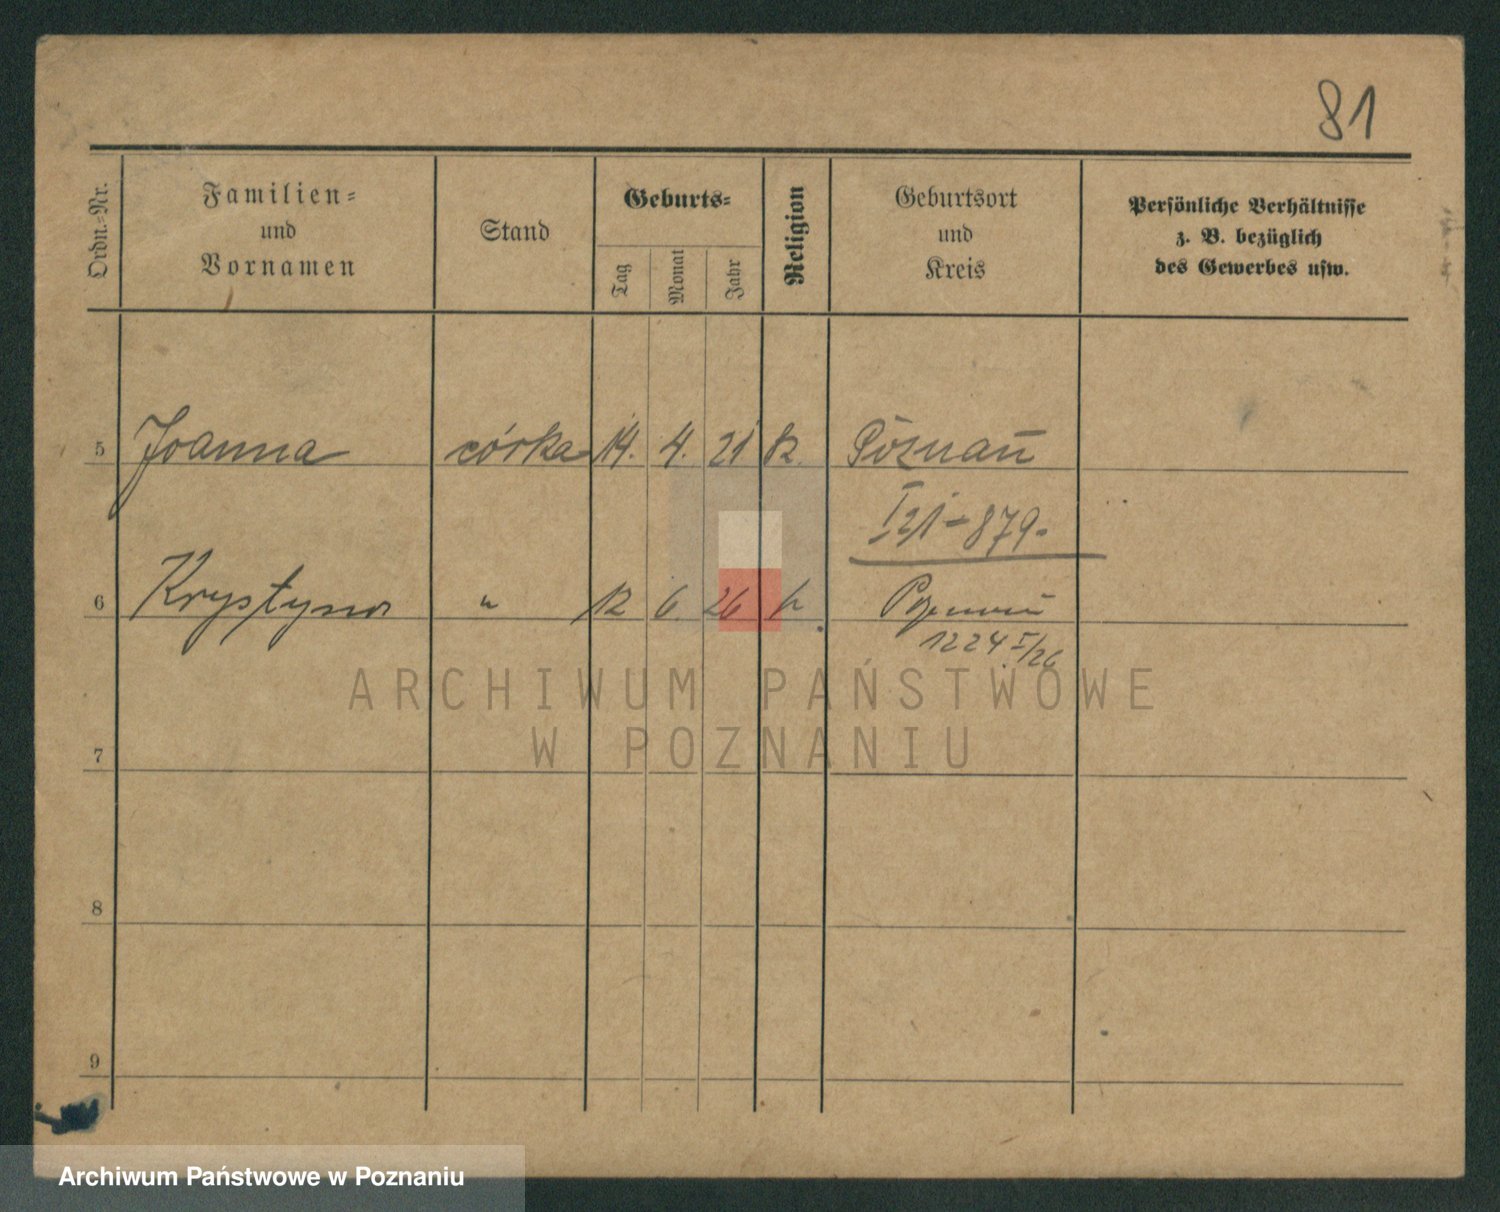 81
Ordn.-Nr.
Familien-
und
Vornamen
Stand
Geburts-
Tag
Monat
Jahr
Religion
Geburtsort
und
Kreis
Persönliche Verhältnisse
z. B. bezüglich
des Gewerbes usw.
5 Joanna córka 14. 4. 21 k. Poznań
I 21-879.
6 Krystyna " 12 6. 26 k Poznań
1224 I/26
7
8
9
ARCHIWUM PAŃSTWOWE
W POZNANIU
Archiwum Państwowe w Poznaniu